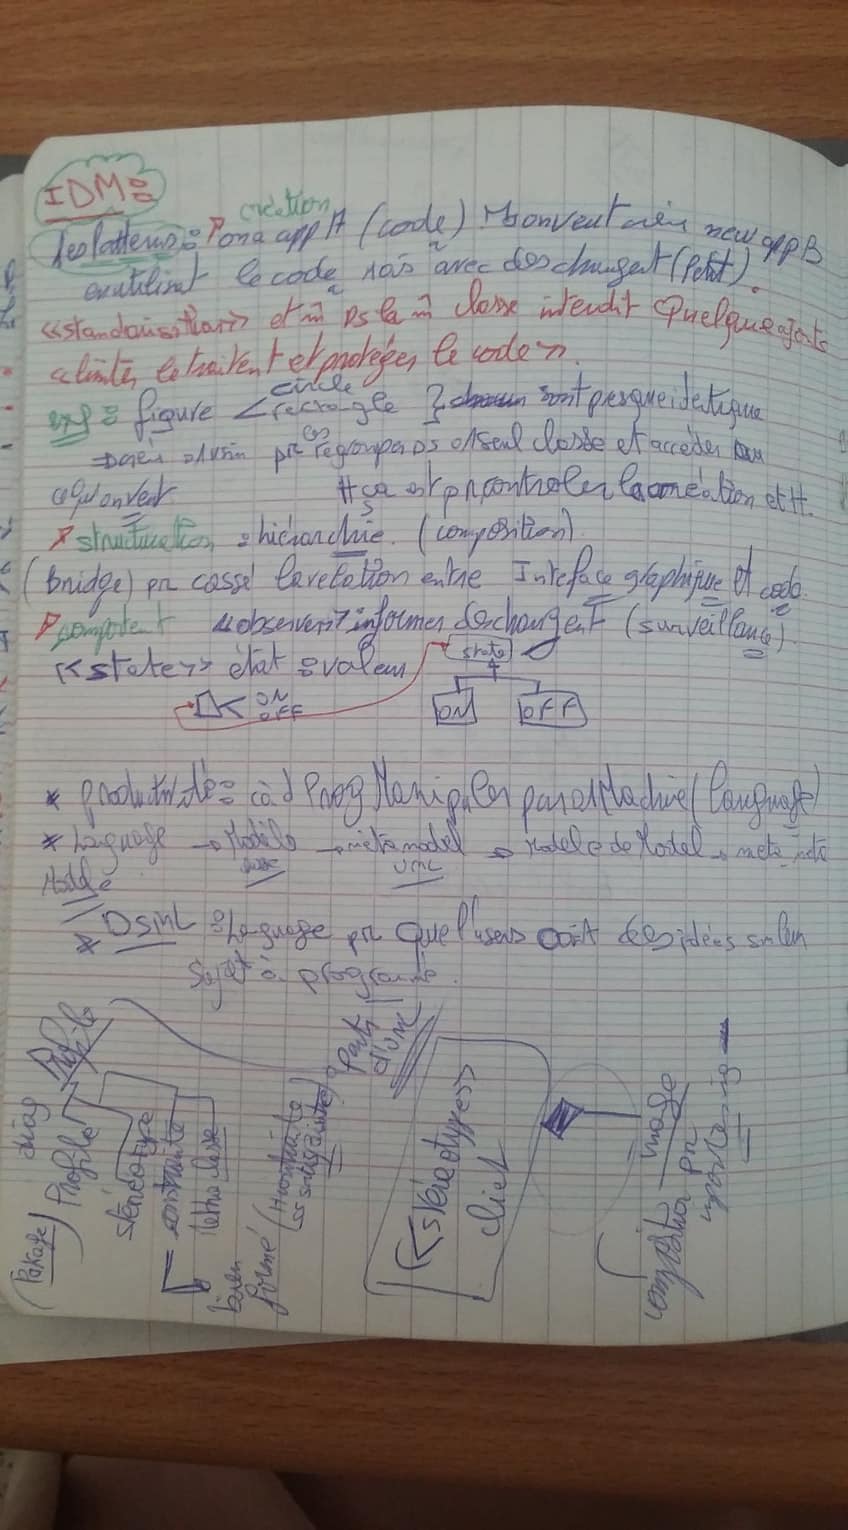 IDM :
création
Les patterns : P on a app A (code) on veut créer new app B
en utilisant le code mais avec des changent (petit).
<<standarisation>> et m̂ ds la m̂ classe interdit Quelque ajouts
<limités le traitent et protéger le code>.
exp : figure < circle rectangle } sont presque identique
pr les regrouper ds 1 seul classe et accéder
ce qu'on veut # ça est pr controler la création et #.
P structuration : hiérarchie. (composition).
(bridge) pr cassé la relation entre Inteface graphique et code.
P comportent <<observer>> informer des changent (surveillance).
<<state>> état : valeur state
ON
OFF
ON OFF
* productivité : càd Prog Manipuler par 1 Machine (language)
* Language → Modèle → méta model → Modele de Model → meta meta
UML
Modèle
* DSML : Language pr que l'users doit des idées sur le
sujet à programmé.
Profile
diag
(Pakage) Profile
stéréotype
contrainte
Metha classe
bien
formé (
Partie
d'UML
<<stéréotype>>
client
image
composition pr